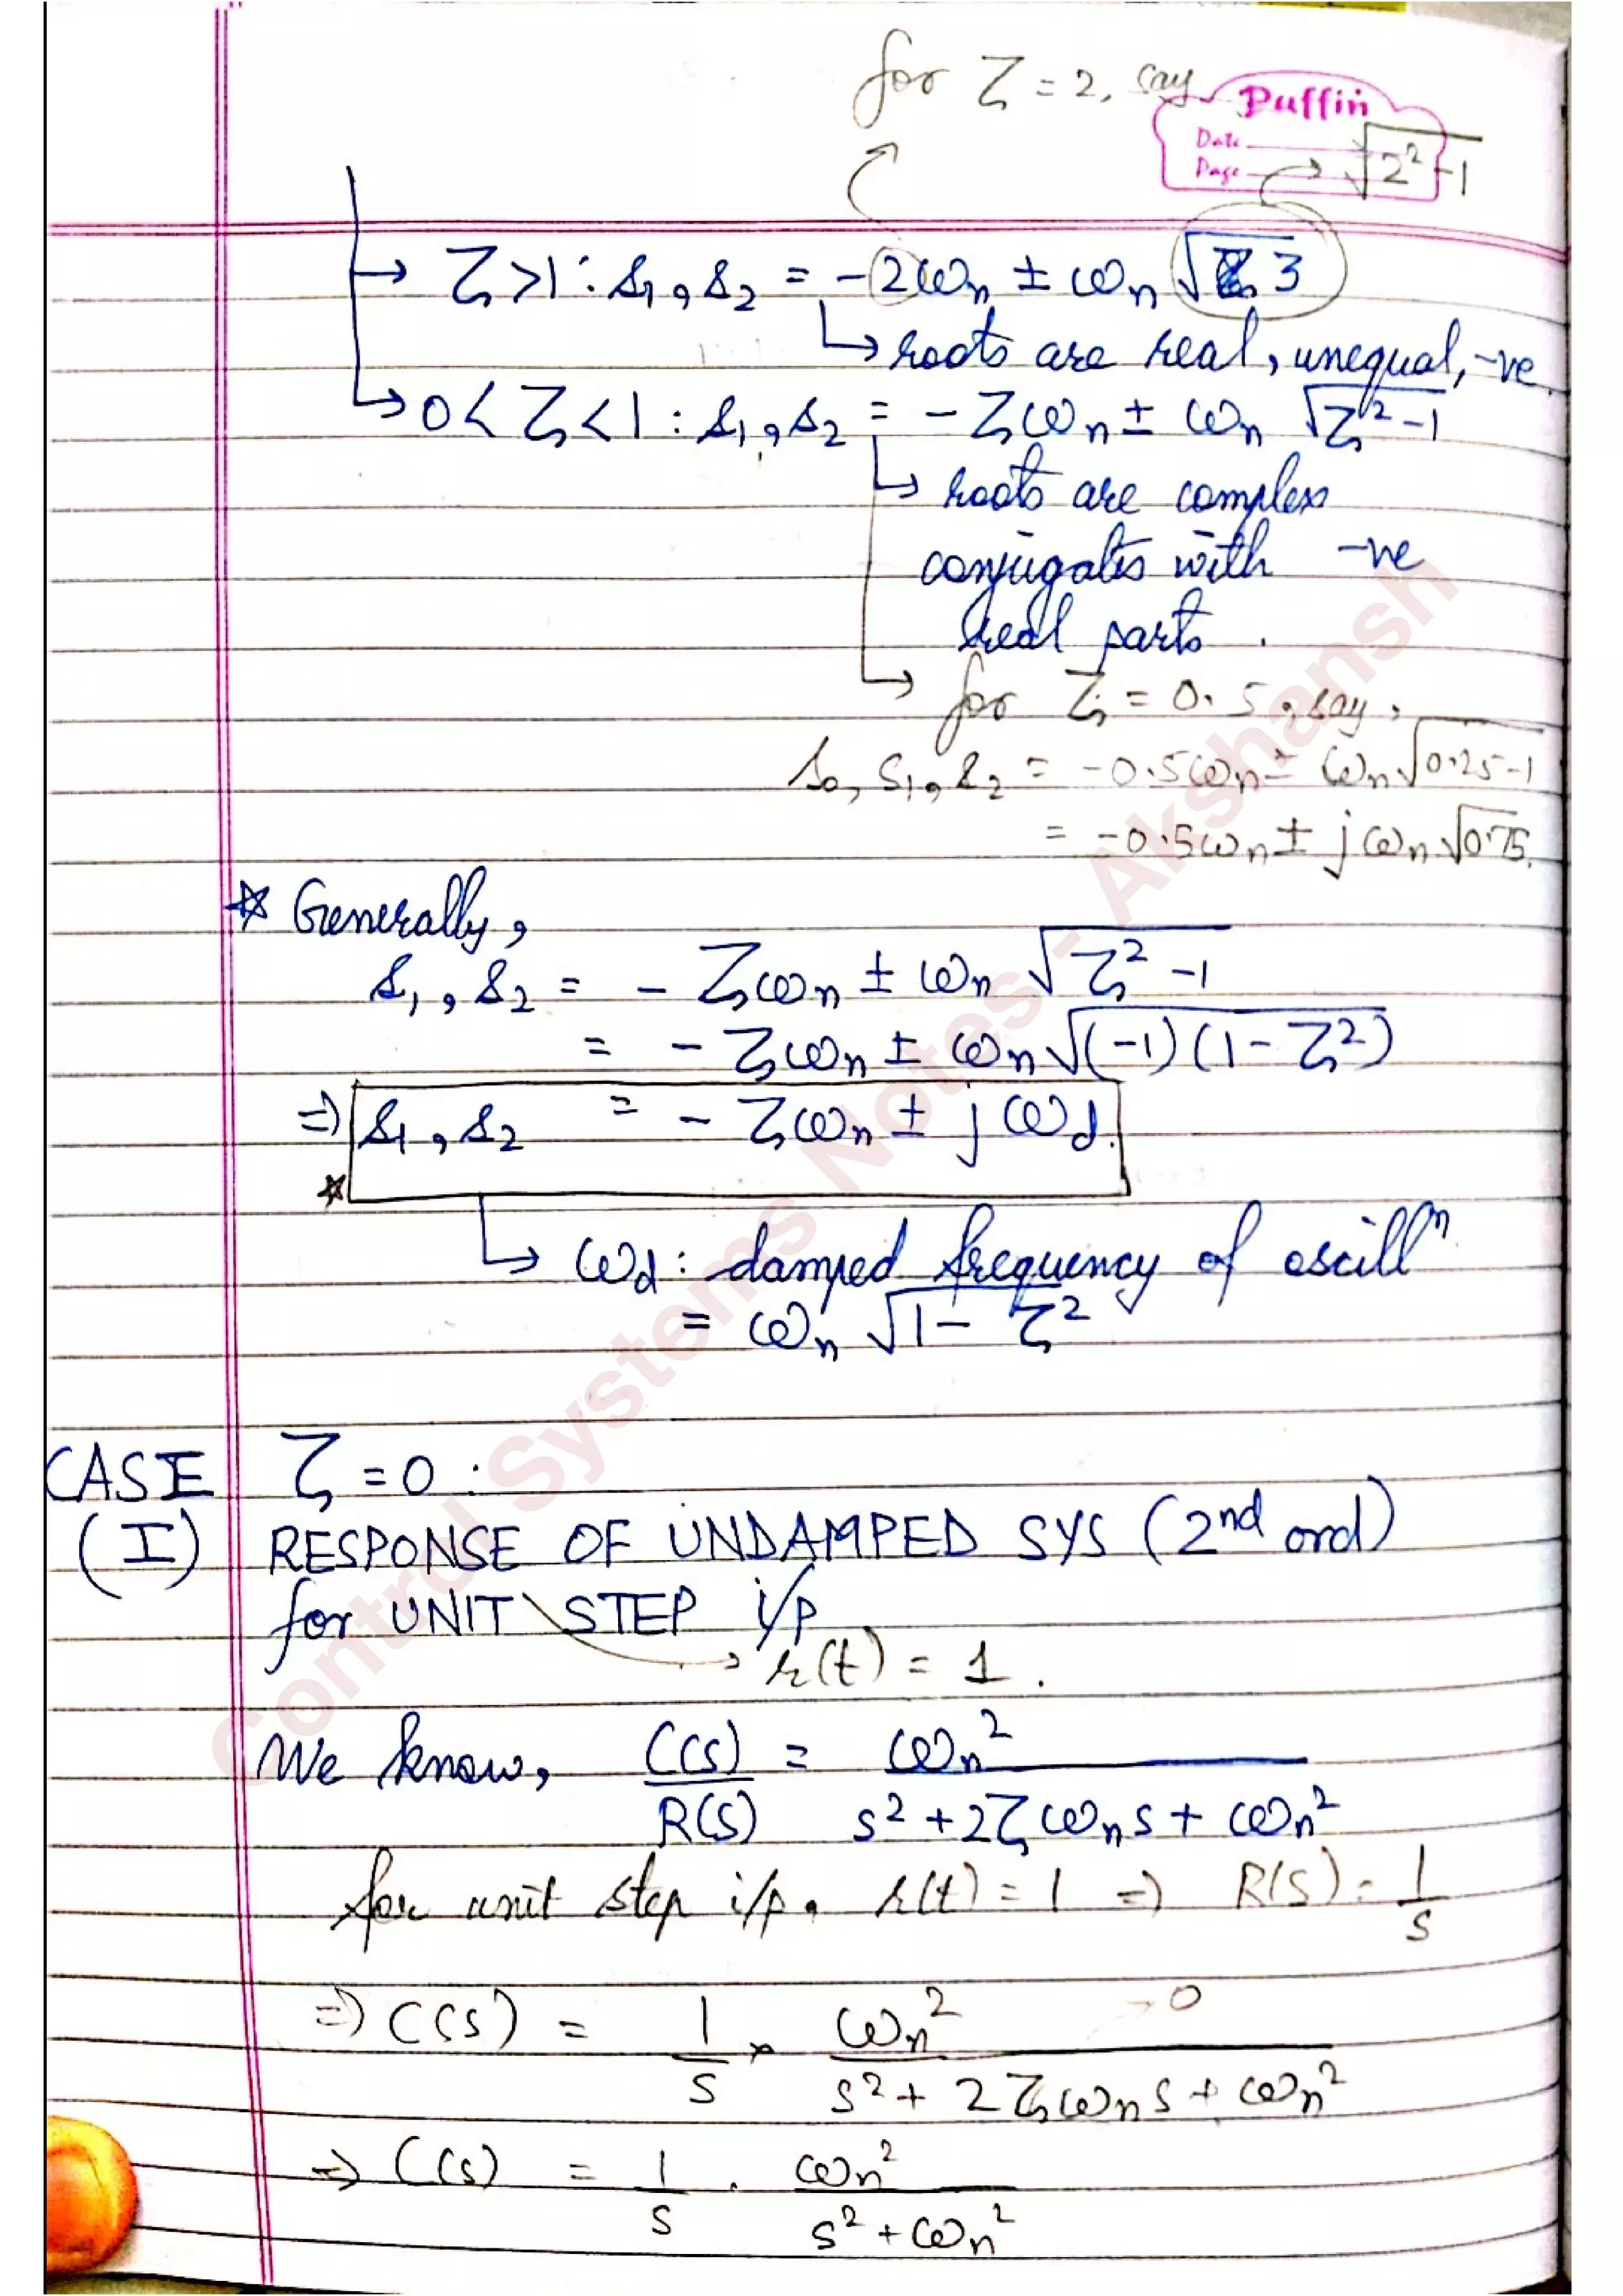 for ζ = 2, say
Puffin
Date
Page
√2²-1
→ ζ>1 : s₁, s₂ = -2ωn ± ωn √3
↳ roots are real, unequal, -ve
↳ 0<ζ<1 : s₁, s₂ = -ζωn ± ωn √ζ²-1
↳ roots are complex
conjugates with -ve
real parts.
↳ for ζ = 0.5, say,
so, s₁, s₂ = -0.5ωn ± ωn√0.25-1
= -0.5ωn ± jωn√0.75.
☆ Generally,
s₁, s₂ = - ζωn ± ωn √ζ²-1
= - ζωn ± ωn√(-1)(1-ζ²)
⇒ s₁, s₂ = - ζωn ± jωd.
☆
↳ ωd : damped frequency of oscillⁿ
= ωn √1-ζ²
CASE ζ = 0 :
(I) RESPONSE OF UNDAMPED SYS (2nd ord)
for UNIT STEP i/p
→ r(t) = 1.
We know, C(s)/R(s) = ωn²/s²+2ζωns+ωn²
for unit step i/p, r(t) = 1 ⇒ R(S) = 1/s
⇒ C(s) = 1/s × ωn²/s²+2ζωns+ωn² → 0
⇒ C(s) = 1/s . ωn²/s²+ωn²
Control Systems Notes - Akshansh